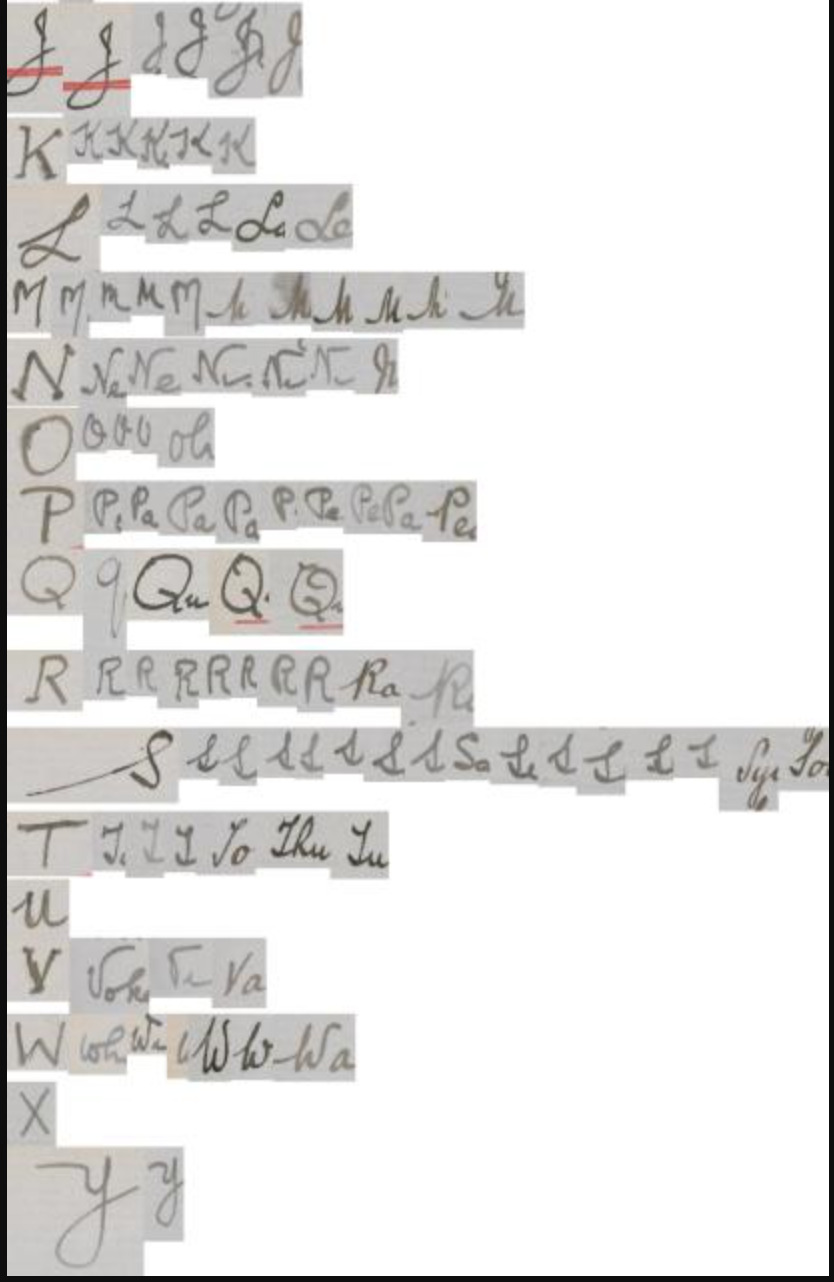 J J J J J J
K K K K K K
L L L L La Le
M M M M M M M M M M M
N Ne Ne N N N N
O O O O Oh
P P. Pa Pa Pa P. Pa Pe Pa Pe
Q q Qu Q. Q
R R R R R R R R Ra R
S S S S S S S S Sa Se S S S S Sy So
T T. T T To Thu Tu
U
V Voh V Va
W Wh W W W Wa
X
Y y